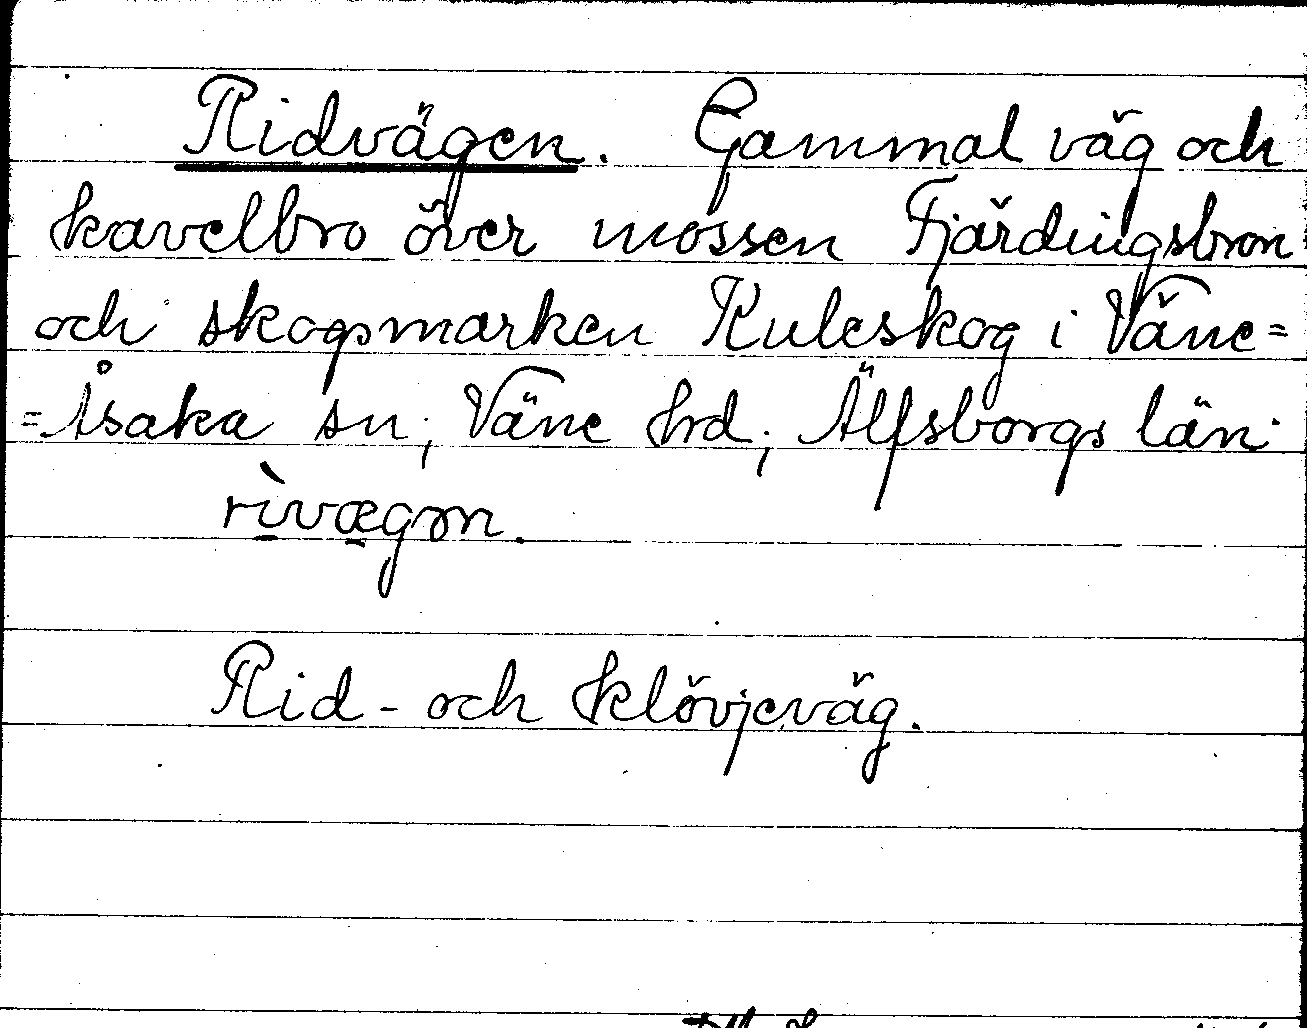 Ridvägen. Gammal väg och
kavelbro över mossen Fjärdingsbron
och skogsmarken Kuleskog i Väne=
=Åsaka sn, Väne hrd, Älfsborgs län.
rìvægən.
Rid- och klövjeväg.